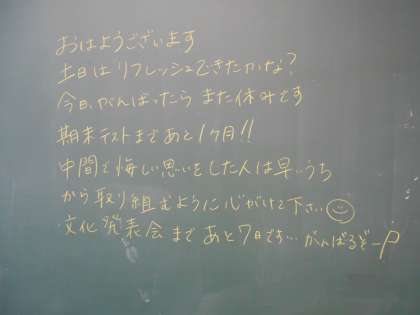 おはようございます
土日はリフレッシュできたかな?
今日、がんばったら また休みです
期末テストまであと1ヶ月!!
中間で悔しい思いをした人は早いうち
から取り組むように心がけて下さい
文化発表会まであと7日です… がんばるぞーP